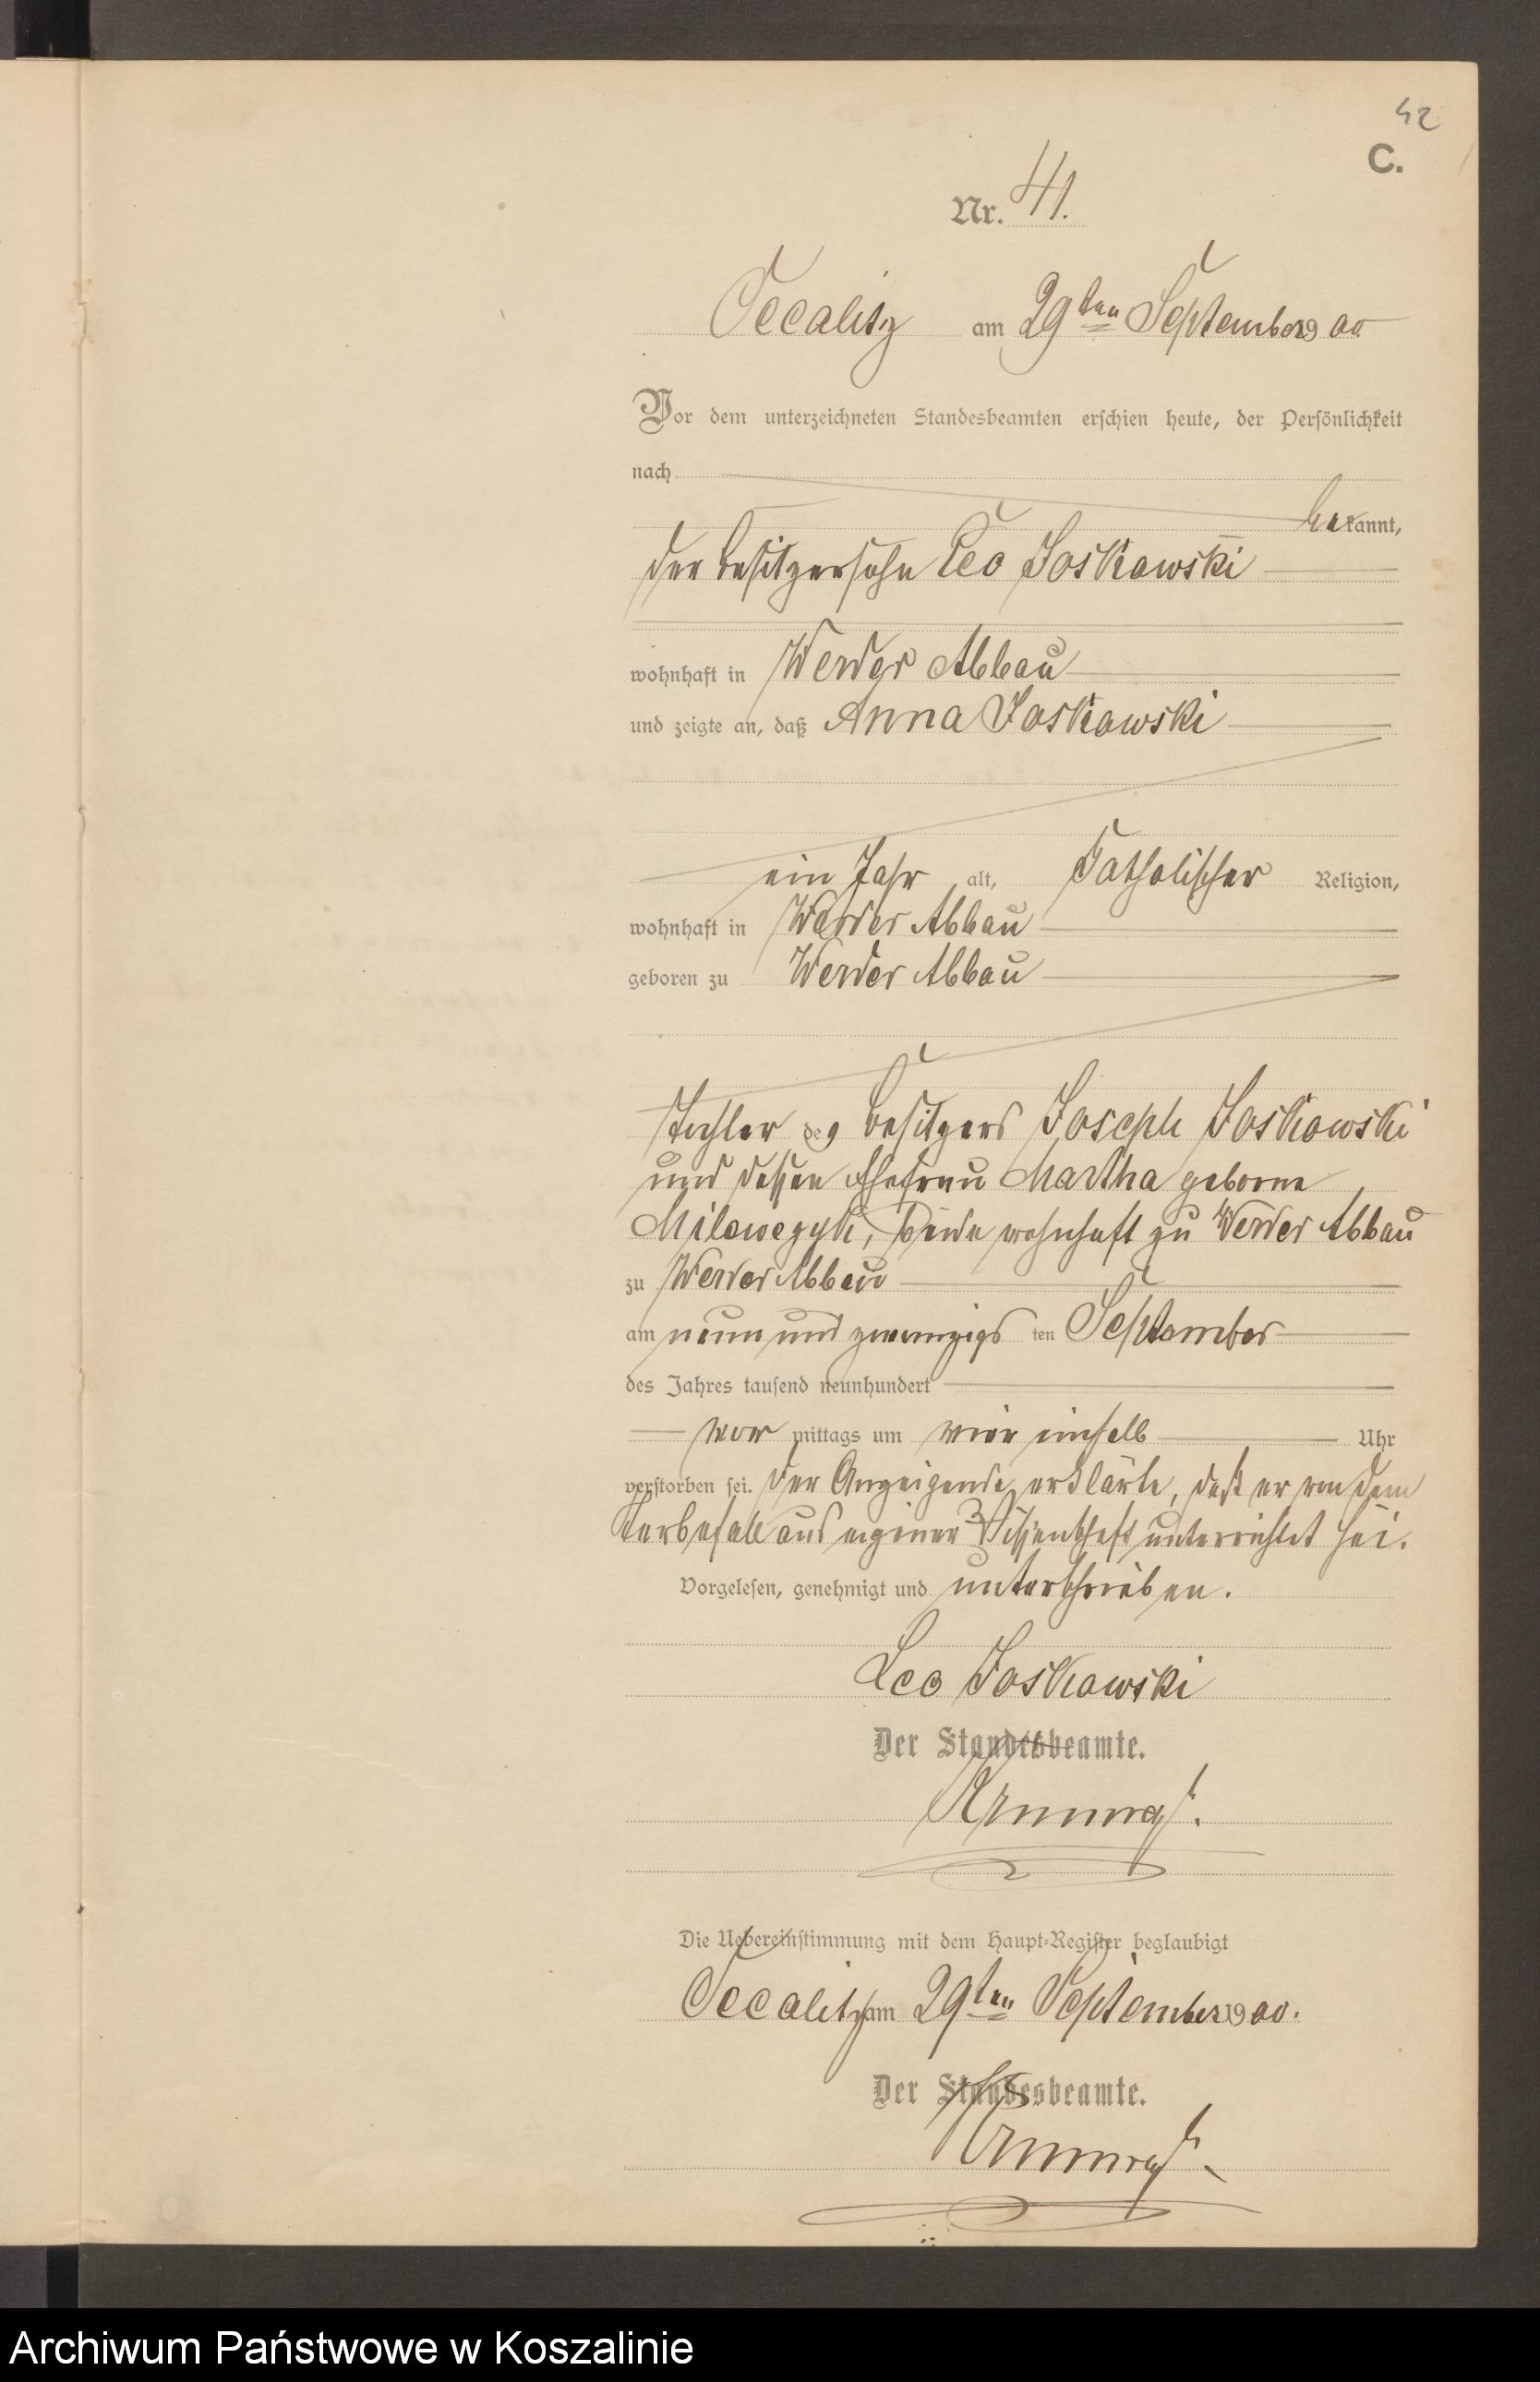 42
C.
Nr. 41.
am 29ten September 1900
Vor dem unterzeichneten Standesbeamten erschien heute, der Persönlichkeit
nach
bekannt,
der Besitzersohn Leo Joskowski
wohnhaft in Werder Abbau
und zeigte an, daß Anna Joskowski
ein Jahr alt, Katholischer Religion,
wohnhaft in Werder Abbau
geboren zu Werder Abbau
Tochter des Besitzers Joseph Joskowski
und dessen Ehefrau Martha geborne
beide wohnhaft zu Werder Abbau
zu Werder Abbau
am neun und zwanzigsten September
des Jahres tausend neunhundert
vor mittags um vier einhalb Uhr
verstorben sei. Der Anzeigende erklärte, daß er von dem
Sterbefall aus eigener Wissenschaft unterrichtet sei.
Vorgelesen, genehmigt und unterschrieben.
Leo Joskowski
Der Standesbeamte.
Die Uebereinstimmung mit dem Haupt-Register beglaubigt
am 29ten September 1900.
Der Standesbeamte.
Archiwum Państwowe w Koszalinie